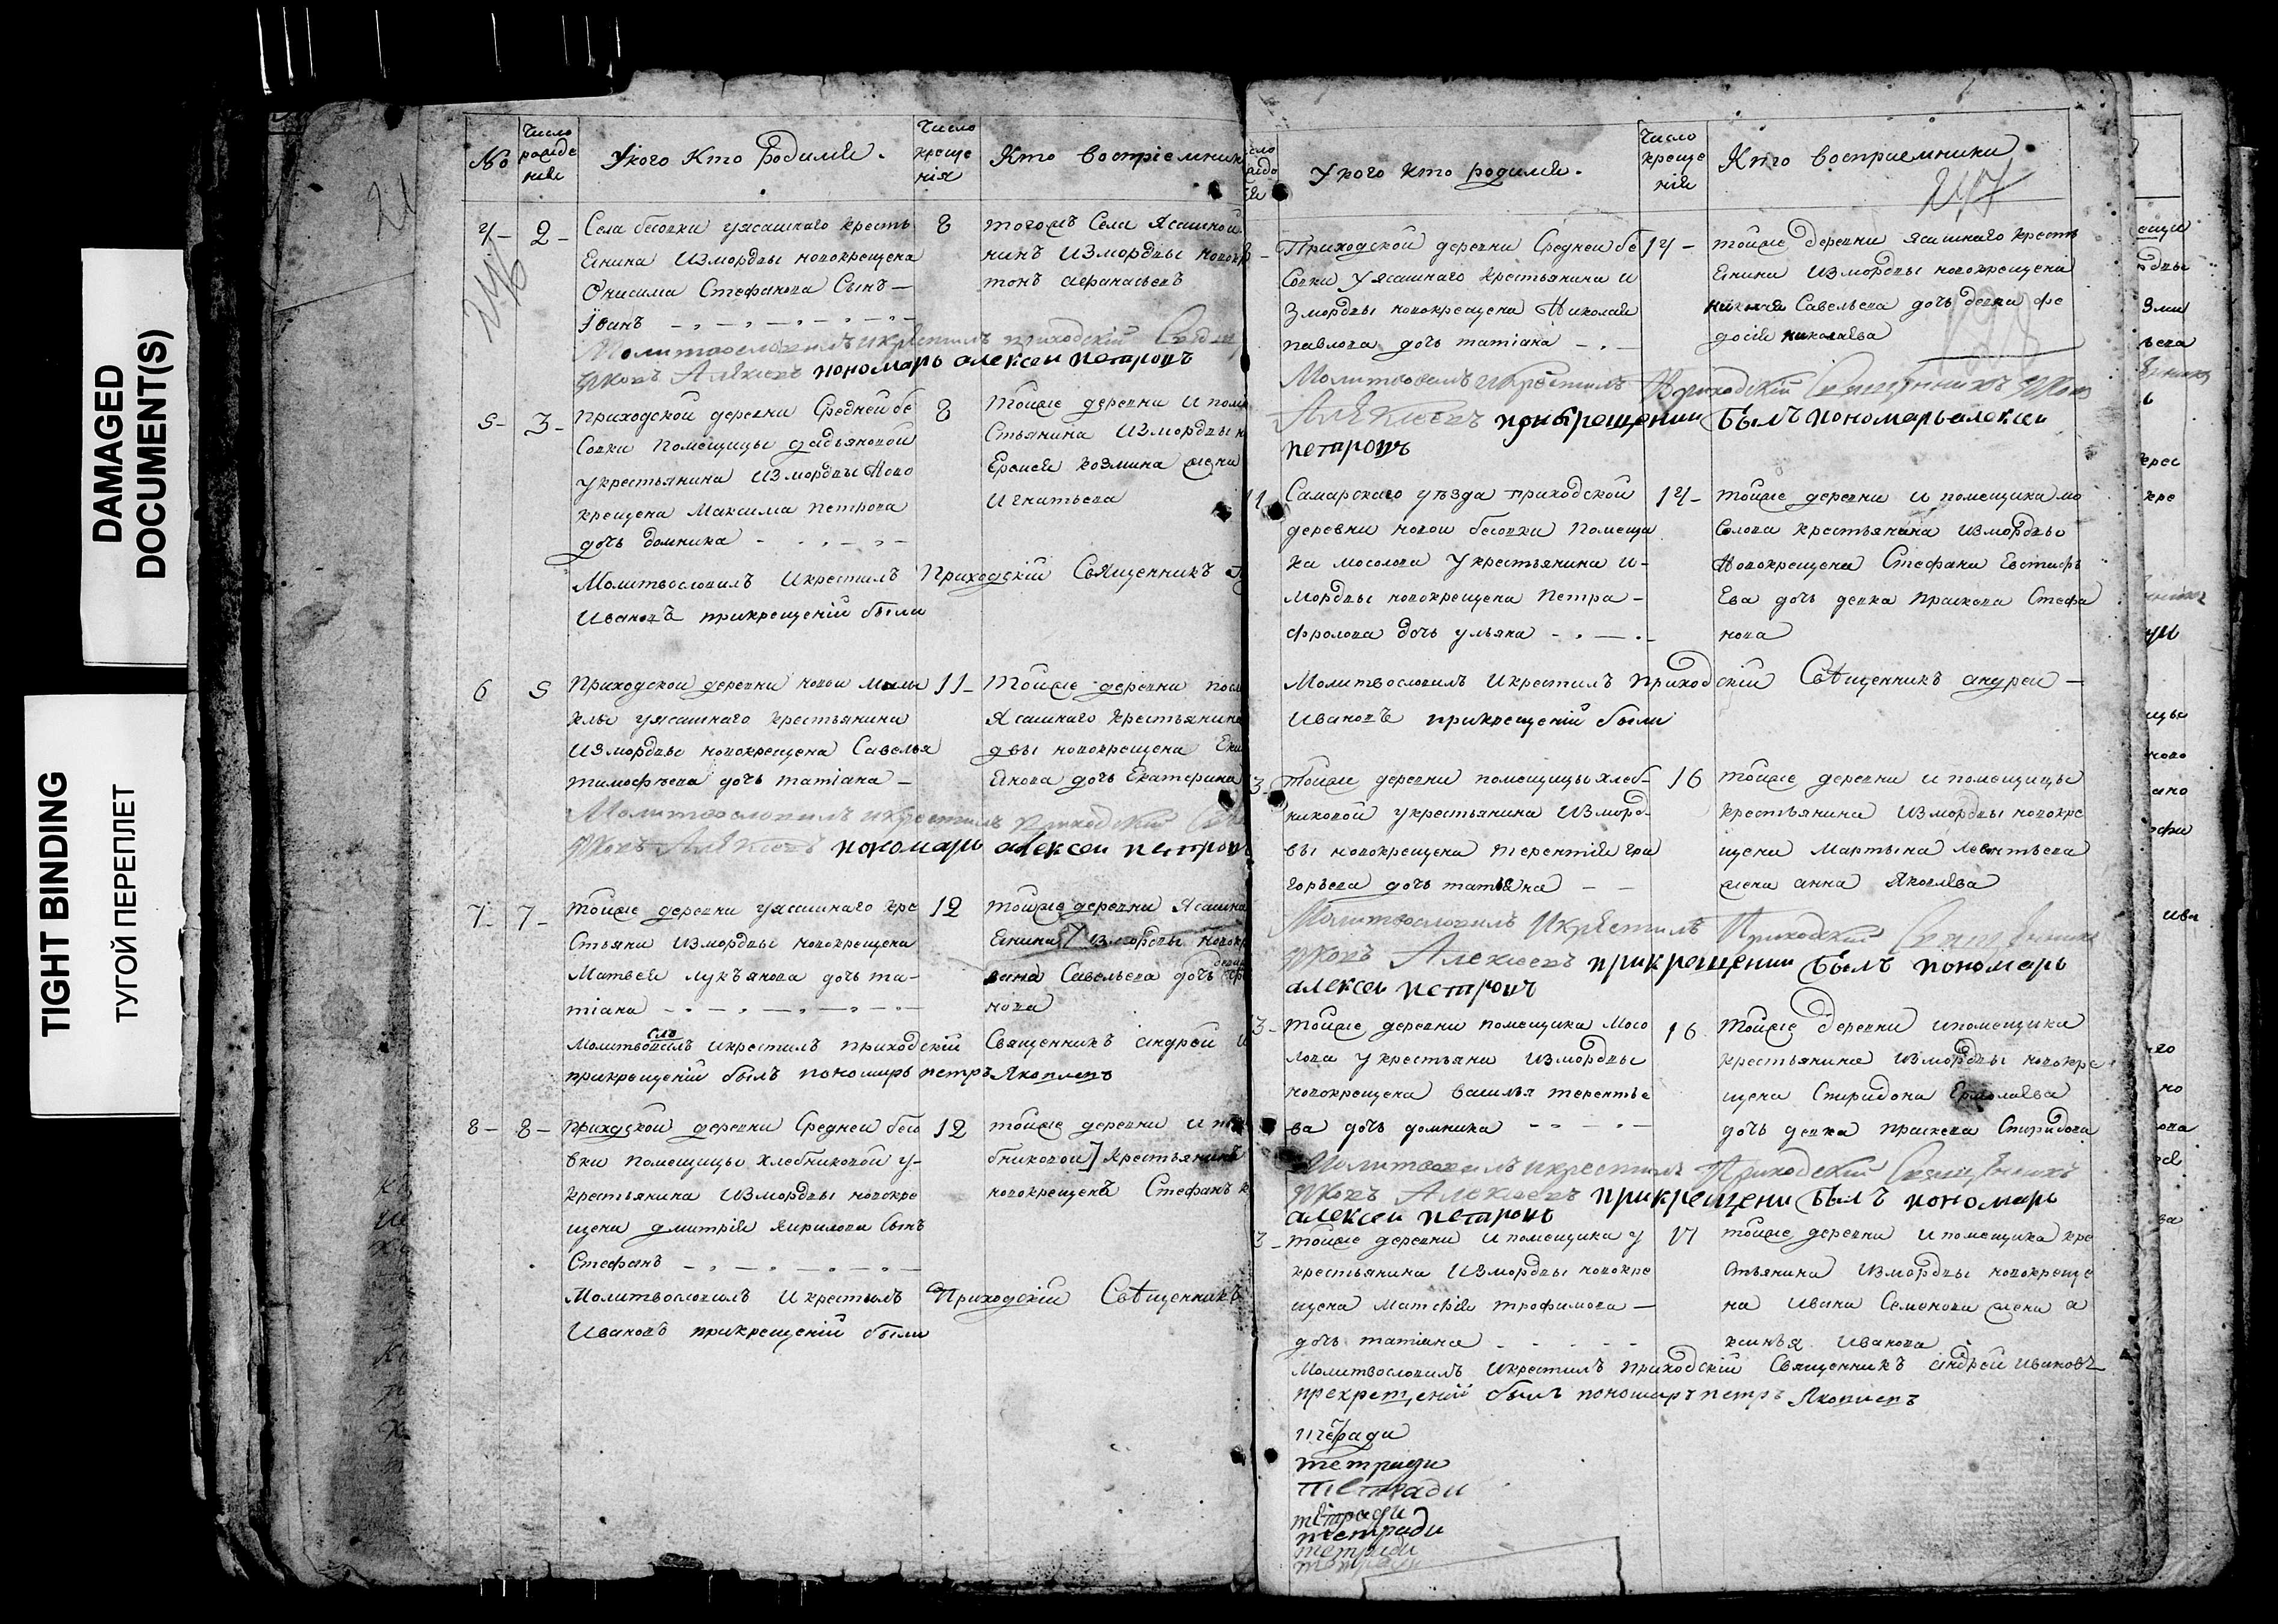 DAMAGED
DOCUMENT(S)
TIGHT BINDING
ТУГОЙ ПЕРЕПЛЕТ
№
Число рождения
У кого Кто Родился.
Число крещения
Кто восприемник
4 – 2 –
Села бесовки уясашнаго кресть
янина измордвы новокрещена
Онисима Стефанова Сынъ –
Iоанъ
8
тогожъ Села Ясашной
нинъ измордвы новокр
тонъ афанасьевъ
Молитвословилъ икрестилъ приходскій
Яковъ Алексеевъ пономарь алексеи петровъ
5 – 3 –
приходской деревни Средней бе
совки помещицы
укрестьянина измордвы Ново
крещена Максима петрова
дочь домника
8
тойже деревни и поме
стьянина измордвы н
жена
игнатьева
Молитвословилъ икрестилъ Приходскій Священникъ
Ивановъ прикрещеніи были
6 5
Приходской деревни новой малы
клы уясашнаго крестьянина
измордвы новокрещена Савелья
тимофѣева дочь татіана –
11 –
Тойже деревни
Ясашнаго крестьянина
двы новокрещена
дочь Екатерина
Молитвословилъ икрестилъ приходскій
Яковъ Алексеевъ пономарь алексеи петров
7 – 7 –
тойже деревни уясашнаго кре
стьяни измордвы новокрещена
Матвея лукъянова дочь та-
тіана
12
тойже деревни Ясашна
янина измордвы новокр
вана Савельева дочь
нова
Молитвословилъ икрестилъ приходскій Священникъ андрей
прикрещеніи былъ пономарь петръ Яковлевъ
8 – 8 –
приходской деревни Средней бесо
вки помещицы хлебниковой у-
крестьянина измордвы новокре
щена дмитрія кирилова Сынъ
Стефанъ
12
тойже деревни и по
бниковой крестьянинъ
новокрещенъ Стефанъ
Молитвословилъ икрестилъ Приходскій Священникъ
Ивановъ прикрещеніи были
У кого кто родился.
Число крещенія
Кто восприемники
247
Приходской деревни Средней бе
совки уясашнаго крестьянина и
змордвы новокрещена Николая
павлова дочь татіана
14 –
тойже деревни ясашнаго кресть
янина измордвы новокрещена
Николая Савельева дочь девка фе
досія николаева
Молитвословилъ икрестилъ Приходскій Священникъ Яков
Алексеевъ прикрещении былъ пономарь алексеи
петровъ
Самарскаго уѣзда приходской
деревни новой бесовки помещи
ка мосолова укрестьянина и-
мордвы новокрещена петра –
фролова дочь ульяна
14 –
тойже деревни и помещика мо
солова крестьянина измордвы
Новокрещена Стефана Евстафь
ева дочь девка праскова Стефа
нова
Молитвословилъ икрестилъ приходскій Священникъ андреи –
Ивановъ прикрещеніи были
3 –
тойже деревни помещицы хлеб-
никовой укрестьянина измор-
вы новокрещена терентія гри
горьева дочь татьяна
16
тойже деревни и помещицы
крестьянина измордвы новокре
щена мартына леонтьева
жена анна Яковлева
Молитвословилъ икрестилъ Приходскій Священникъ
Яковъ Алексеевъ прикрещении былъ пономарь
алексеи петровъ
3 –
тойже деревни помещика Мосо
лова укрестьяни измордвы
новокрещена василья терентье
ва дочь домника
16
тойже деревни ипомещика
крестьянина измордвы новокре
щена Спиридона Ермолаева
дочь девка праскева Спиридова
Молитвословилъ икрестилъ Приходскій Священникъ
Яковъ Алексеевъ прикрещени былъ пономарь
алексеи петровъ
3 –
тойже деревни и помещика у
крестьянина измордвы новокре
щена Матвея трофимова –
дочь татиана
17
тойже деревни и помещика кре
стьянина измордвы новокреще
на ивана Семенова жена а
ксинья иванова
Молитвословилъ икрестилъ приходскій Священникъ андреи ивановъ
прекрещеніи былъ пономарь петръ Яковлевъ
тетради
тетради
тетради
тетради
тетради
тетради